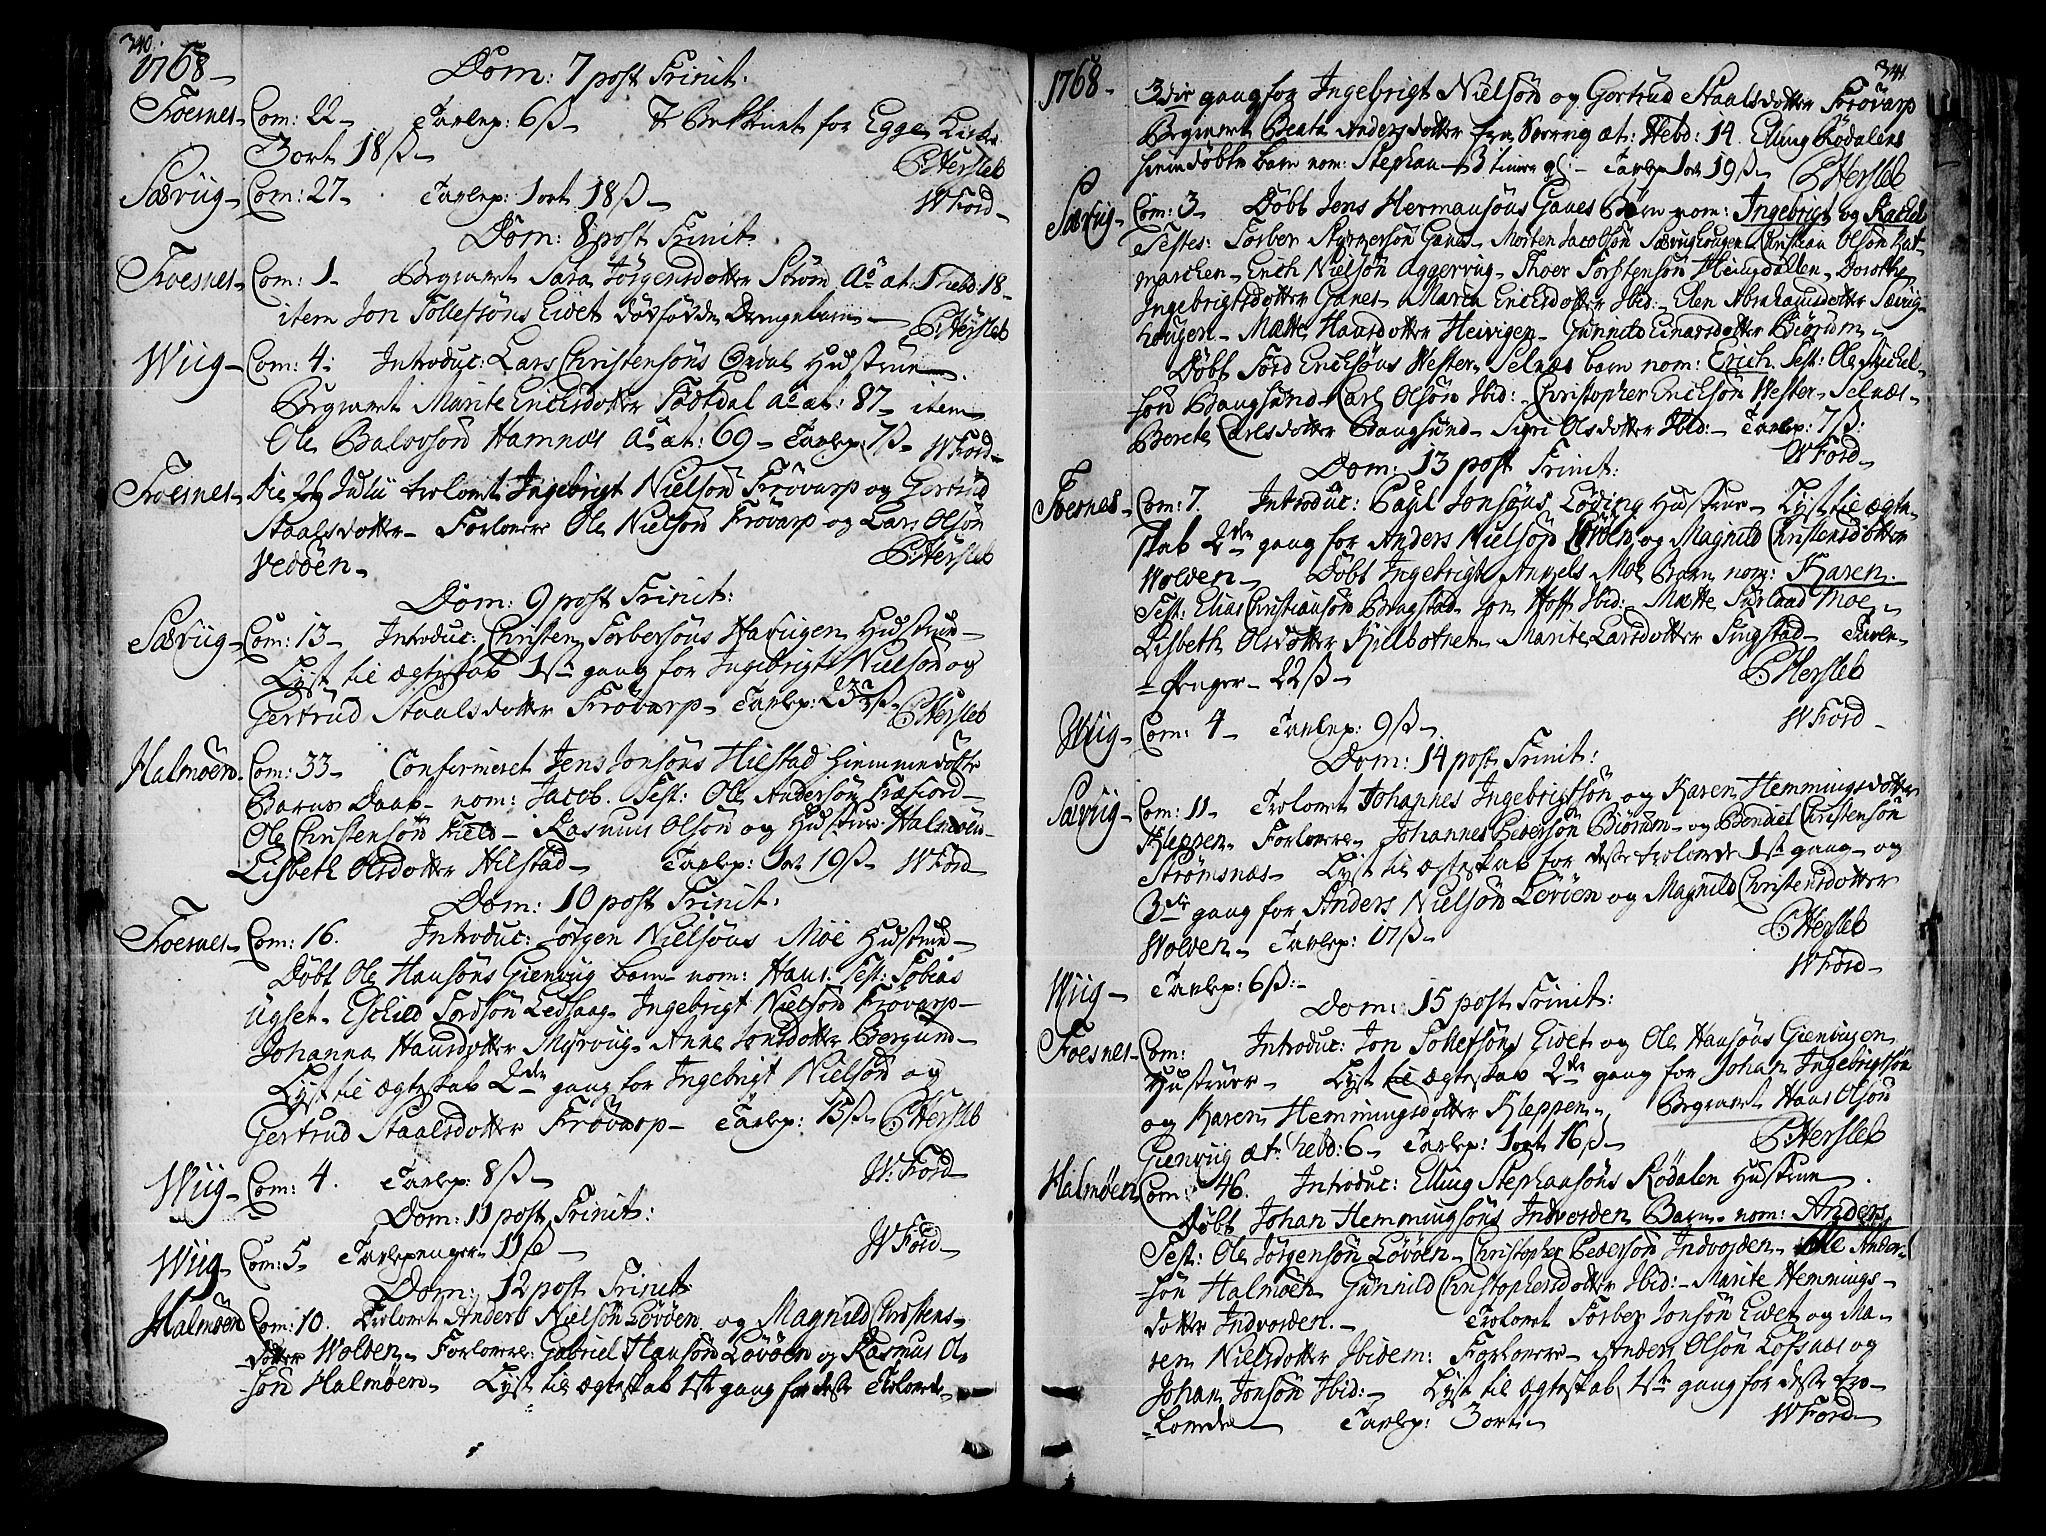 340.
1768 Dom: 7 post Trinit:
Foesnes Com: 22 Tavlep: 6 ß for Egge Kirke
3 ort 18 ß P: Hersleb
Særvig Com: 27 Tavlep: 1 ort 18 ß W Ford
Dom: 8 post Trinit:
Foesnes Com: 1 Begravet Sara Jörgensdotter Ström Ao æt: 1 hebd: 18
item Jon Tollefsöns Eidet dödfödde Drengebarn P: Herslebs
Wiig Com: 4: Introduc: Lars Christensöns Opdal Hustrue
Begravet Marite Ericksdotter Fadtdal Ao æt: 87 item
Ole Halvorsön Hamnæs Ao æt: 69 Tavlep: 7 ß W Ford
Foesnes Die 24 Julii trolovet Ingebrigt Nielsön Frövarp og Gertrud
Staalsdotter Forlovere Ole Nielsön Frövarp og Lars Olsön
Vedöen P: Herslebs
Dom: 9 post Trinit:
Særvig Com: 13 Introduc: Christen Torbersöns Havigen Hustrue
Lyst til ægteskab 1ste gang for Ingebrigt Nielsön og
Gertrud Staalsdotter Frövarp Tavlep: 23 ß P: Herslebs
Halmöen Com: 33 Confirmeret Jens Jonsöns Hilstad hiemmedöbte
Barns Daab nom: Jacob. Test: Ole Andersön Træfiord
Ole Christensön Field Rasmus Olsön og Hustrue Halmöen
Lisbeth Olsdotter Hilstad Tavlep: Ort 19 ß W Ford
Dom: 10 post Trinit:
Foesnes Com: 16. Introduc: Jörgen Nielsöns Moe Hustrue
Döbt Ole Hansöns Gienvig barn nom: Hans. Test: Tobias
Ugset Eschild Tordsön Ledsaag Ingebrigt Nielsön Frövarp
Johanna Hansdotter Myrvig Anne Jonsdotter Bergsund
Lyst til ægteskab 2den gang for Ingebrigt Nielsön og
Gertrud Staalsdotter Frövarp Tavlep: 15 ß P: Herslebs
Wiig Com: 4. Tavlep: 8 ß W: Ford
Dom: 11 post Trinit:
Wiig Com: 5 Tavlepenger 11 ß W Ford
Dom: 12 post Trinit:
Halmöen Com: 10. Trolovet Anders Nielsön Lövöen og Magnild Christens-
dotter Wolden Forlovere: Gabriel Hansön Lövöen og Rasmus Ol-
sön Halmöen Lyst til ægteskab 1ste gang for disse Trolovede
341.
1768 3die gang for Ingebrigt Nielsön og Gertrud Staalsdotter Frövarp
Begravet Beata Andersdotter fra æt: Hebd: 14. Elling Rödalens
hiemdöbte barn nom: Stephan 3 timer gl: Tavlep 1 ort 19 ß P: Herslebs
Særvig Com: 3 Döbt Jens Hermansöns Ganes Börn nom: Ingebrigt og Rachel
Testes: Torber Ganes Morten Jacobsön Særvighougen Christian Olsön Kat-
marchen Erich Nielsön Aggervig Thoer Torstensön Heimsdallen Dorothe
Ingebrigtsdotter Ganes Maria Ericksdotter Ibid: Elen Abrahamsdotter Særvig-
hougen Mætte Hansdotter Heivigen Gunnild Einarsdotter Biörum
Döbt Tord Ericksöns Wester Selnæs barn nom: Erich. Test: Ole Michel-
sön Baugsund Carl Olsön Ibid: Christopher Ericksön Wester Selnæs
Berete Carlsdotter Baugsund Siri Olsdotter Ibid: Tavlep: 7 ß:
W Ford
Dom: 13 post Trinit:
Foesnes Com: 7. Introduc: Paul Jonsöns Löding Hustrue Lyst til ægte-
skab 2den gang for Anders Nielsön Lövöen og Magnild Christensdotter
Wolden Döbt Ingebrigt Moe Barn nom: Karen.
Test: Elias Christiansön Brugstad Jon Hoff Ibid: Mætte Moe
Lisbeth Olsdotter Kilbotnet Marite Larsdotter Tingstad Tavle-
penger 22 ß P: Herslebs
Wiig Com: 4 Tavlep: 9 ß W Ford
Dom: 14 post Trinit:
Særvig Com: 11 Trolovet Johannes Ingebrigtsön og Karen Hemmingsdotter
Kleppen Forlovere Johannes Pedersön Biörum og Bendict Christensön
Strömsnæs Lyst til ægteskab for disse trolovede 1ste gang og
3die gang for Anders Nielsön Lövöen og Magnild Christensdotter
Wolden Tavlep: 17 ß P: Herslebs
W Ford
Wiig Tavlep: 6 ß:
Dom: 15 post Trinit:
Foesnes Com: Introduc: Jon Tollefsöns Eidet og Ole Hansöns Gienvigen
Hustruer Lyst til ægteskab 2den gang for Johan Ingebrigtsön
og Karen Hemmingsdotter Kleppen Begravet Hans Olsön
Gienvig æt: hebd: 6 Tavlep: 1 ort 16 ß P: Herslebs
Halmöen Com: 46. Introduc: Elling Stephansöns Rödalen Hustrue
Döbt Johan Hemmingsöns Indvorden Barn nom: Anders
Test: Ole Jörgensön Lövöen Christopher Pedersön Indvorden Ole Ander-
sön Halmöen Gunnild Christophersdotter Ibid: Marite Hemmings-
dotter Indvorden. Trolovet Torber Jonsön Eidet og Ma-
ren Nielsdotter Ibidem: Forlovere Anders Olsön Lofsnæs og
Johan Jonsön Ibid: Lyst til ægteskab 1ste gang for disse tro-
lovede Tavlep: 3 ort W Ford